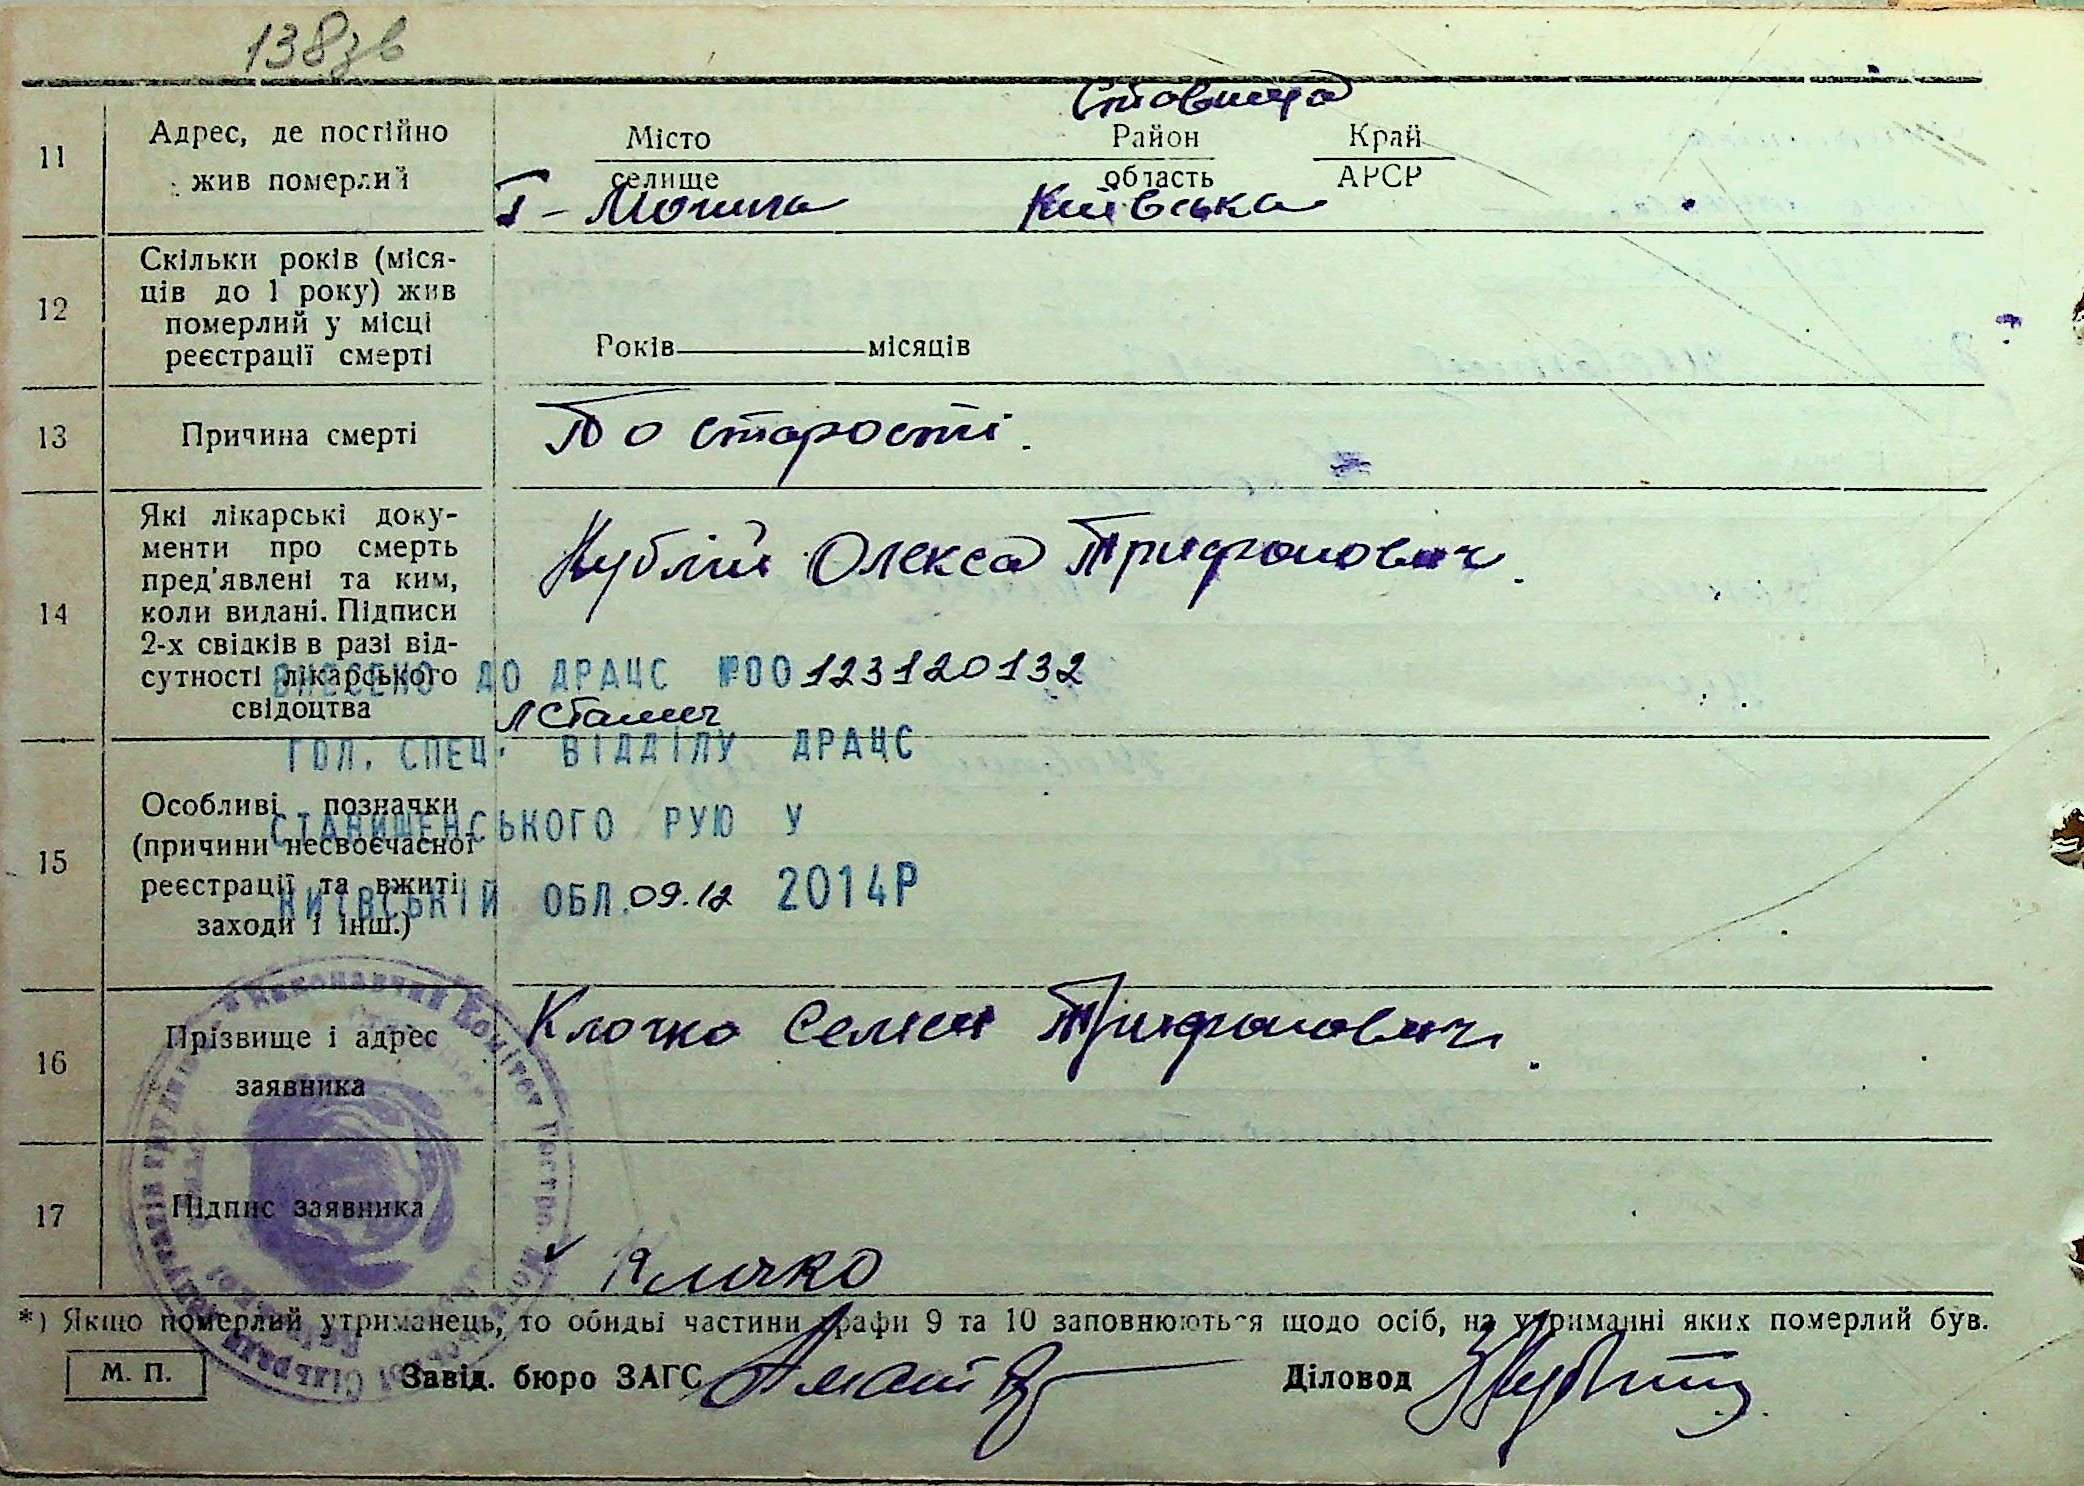 138зв
Ставища
11 Адрес, де постійно жив померлий
Місто Район Край
селище область АРСР
Г-Могила Київська
12 Скільки років (міся-
ців до 1 року) жив
померлий у місці
реєстрації смерті
Років місяців
13 Причина смерті
По старості.
14 Які лікарські доку-
менти про смерть
пред'явлені та ким,
коли видані. Підписи
2-х свідків в разі від-
сутності лікарського
свідоцтва
Кублій Олекса Трифонович.
ВНЕСЕНО ДО ДРАЦС №00123120132
ГОЛ. СПЕЦ. ВІДДІЛУ ДРАЦС
СТАВИЩЕНСЬКОГО РУЮ У
КИЇВСЬКІЙ ОБЛ. 09.12 2014Р
15 Особливі позначки
(причини несвоєчасної
реєстрації та вжиті
заходи і інш.)
16 Прізвище і адрес
заявника
Клочко Семен Трифонович.
17 Підпис заявника
Клочко
*) Якщо померлий утриманець, то обидві частини графи 9 та 10 заповнюються щодо осіб, на утриманні яких померлий був.
М. П. Завід. бюро ЗАГС Діловод